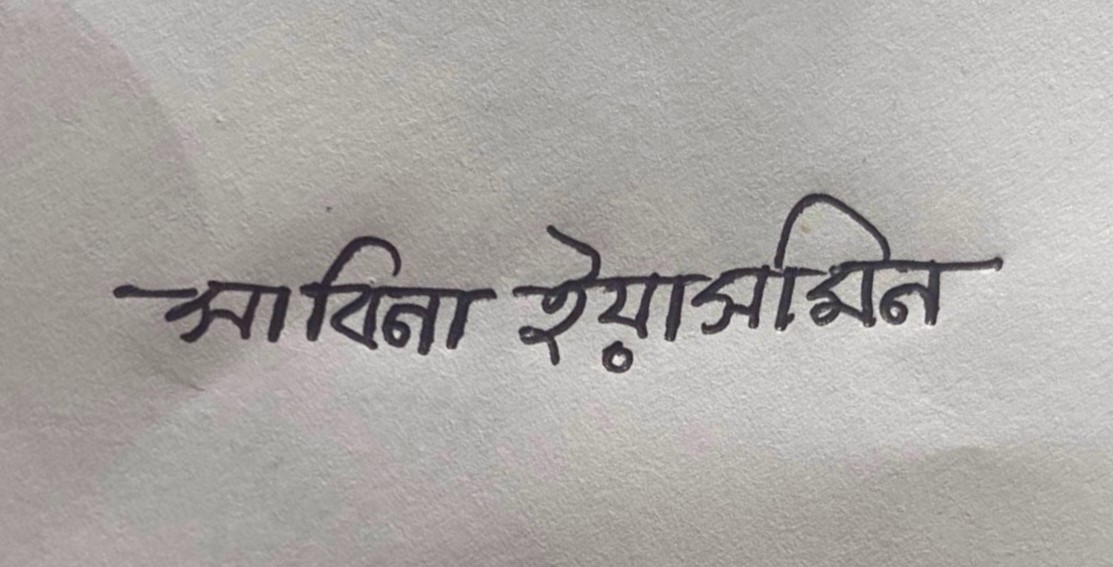 সাবিনা ইয়াসমিন